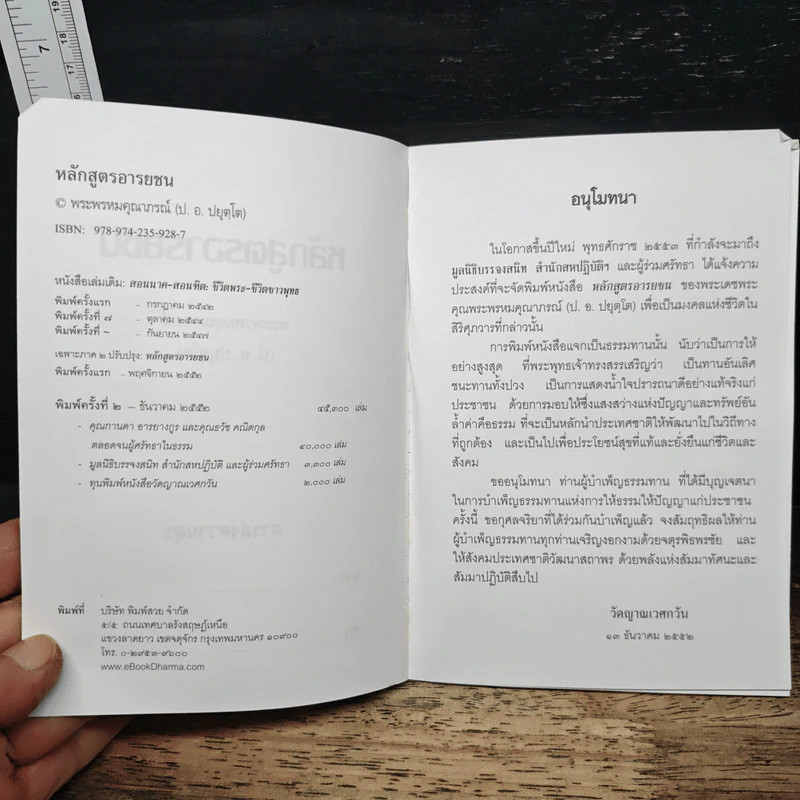 หลักสูตรอารยชน
© พระพรหมคุณาภรณ์ (ป. อ. ปยุตฺโต)
ISBN: 978-974-235-928-7
หนังสือเล่มเดิม: สอนนาค-สอนทิด: ชีวิตพระ-ชีวิตชาวพุทธ
พิมพ์ครั้งแรก - กรกฎาคม ๒๕๔๒
พิมพ์ครั้งที่ ๗ - ตุลาคม ๒๕๔๔
พิมพ์ครั้งที่ - - กันยายน ๒๕๔๗
เฉพาะภาค ๒ ปรับปรุง: หลักสูตรอารยชน
พิมพ์ครั้งแรก - พฤศจิกายน ๒๕๕๒
พิมพ์ครั้งที่ ๒ – ธันวาคม ๒๕๕๒ ๔๕,๓๐๐ เล่ม
- คุณกานดา อารยางกูร และคุณธวัช คณิตกุล
ตลอดจนผู้ศรัทธาในธรรม ๔๐,๐๐๐ เล่ม
- มูลนิธิบรรจงสนิท สำนักสหปฏิบัติ และผู้ร่วมศรัทธา ๓,๓๐๐ เล่ม
- ทุนพิมพ์หนังสือวัดญาณเวศกวัน ๒,๐๐๐ เล่ม
พิมพ์ที่ บริษัท พิมพ์สวย จำกัด
๕/๕ ถนนเทศบาลรังสฤษฎ์เหนือ
แขวงลาดยาว เขตจตุจักร กรุงเทพมหานคร ๑๐๙๐๐
โทร. ๐-๒๙๕๓-๙๖๐๐
www.eBookDharma.com
อนุโมทนา
ในโอกาสขึ้นปีใหม่ พุทธศักราช ๒๕๕๓ ที่กำลังจะมาถึง
มูลนิธิบรรจงสนิท สำนักสหปฏิบัติฯ และผู้ร่วมศรัทธา ได้แจ้งความ
ประสงค์ที่จะจัดพิมพ์หนังสือ หลักสูตรอารยชน ของพระเดชพระ
คุณพระพรหมคุณาภรณ์ (ป. อ. ปยุตฺโต) เพื่อเป็นมงคลแห่งชีวิตใน
สิริศุภวารที่กล่าวนั้น
การพิมพ์หนังสือแจกเป็นธรรมทานนั้น นับว่าเป็นการให้
อย่างสูงสุด ที่พระพุทธเจ้าทรงสรรเสริญว่า เป็นทานอันเลิศ
ชนะทานทั้งปวง เป็นการแสดงน้ำใจปรารถนาดีอย่างแท้จริงแก่
ประชาชน ด้วยการมอบให้ซึ่งแสงสว่างแห่งปัญญาและทรัพย์อัน
ล้ำค่าคือธรรม ที่จะเป็นหลักนำประเทศชาติให้พัฒนาไปในวิถีทาง
ที่ถูกต้อง และเป็นไปเพื่อประโยชน์สุขที่แท้และยั่งยืนแก่ชีวิตและ
สังคม
ขออนุโมทนา ท่านผู้บำเพ็ญธรรมทาน ที่ได้มีบุญเจตนา
ในการบำเพ็ญธรรมทานแห่งการให้ธรรมให้ปัญญาแก่ประชาชน
ครั้งนี้ ขอกุศลจริยาที่ได้ร่วมกันบำเพ็ญแล้ว จงสัมฤทธิผลให้ท่าน
ผู้บำเพ็ญธรรมทานทุกท่านเจริญงอกงามด้วยจตุรพิธพรชัย และ
ให้สังคมประเทศชาติวัฒนาสถาพร ด้วยพลังแห่งสัมมาทัศนะและ
สัมมาปฏิบัติสืบไป
วัดญาณเวศกวัน
๑๓ ธันวาคม ๒๕๕๒
7
19
18
17